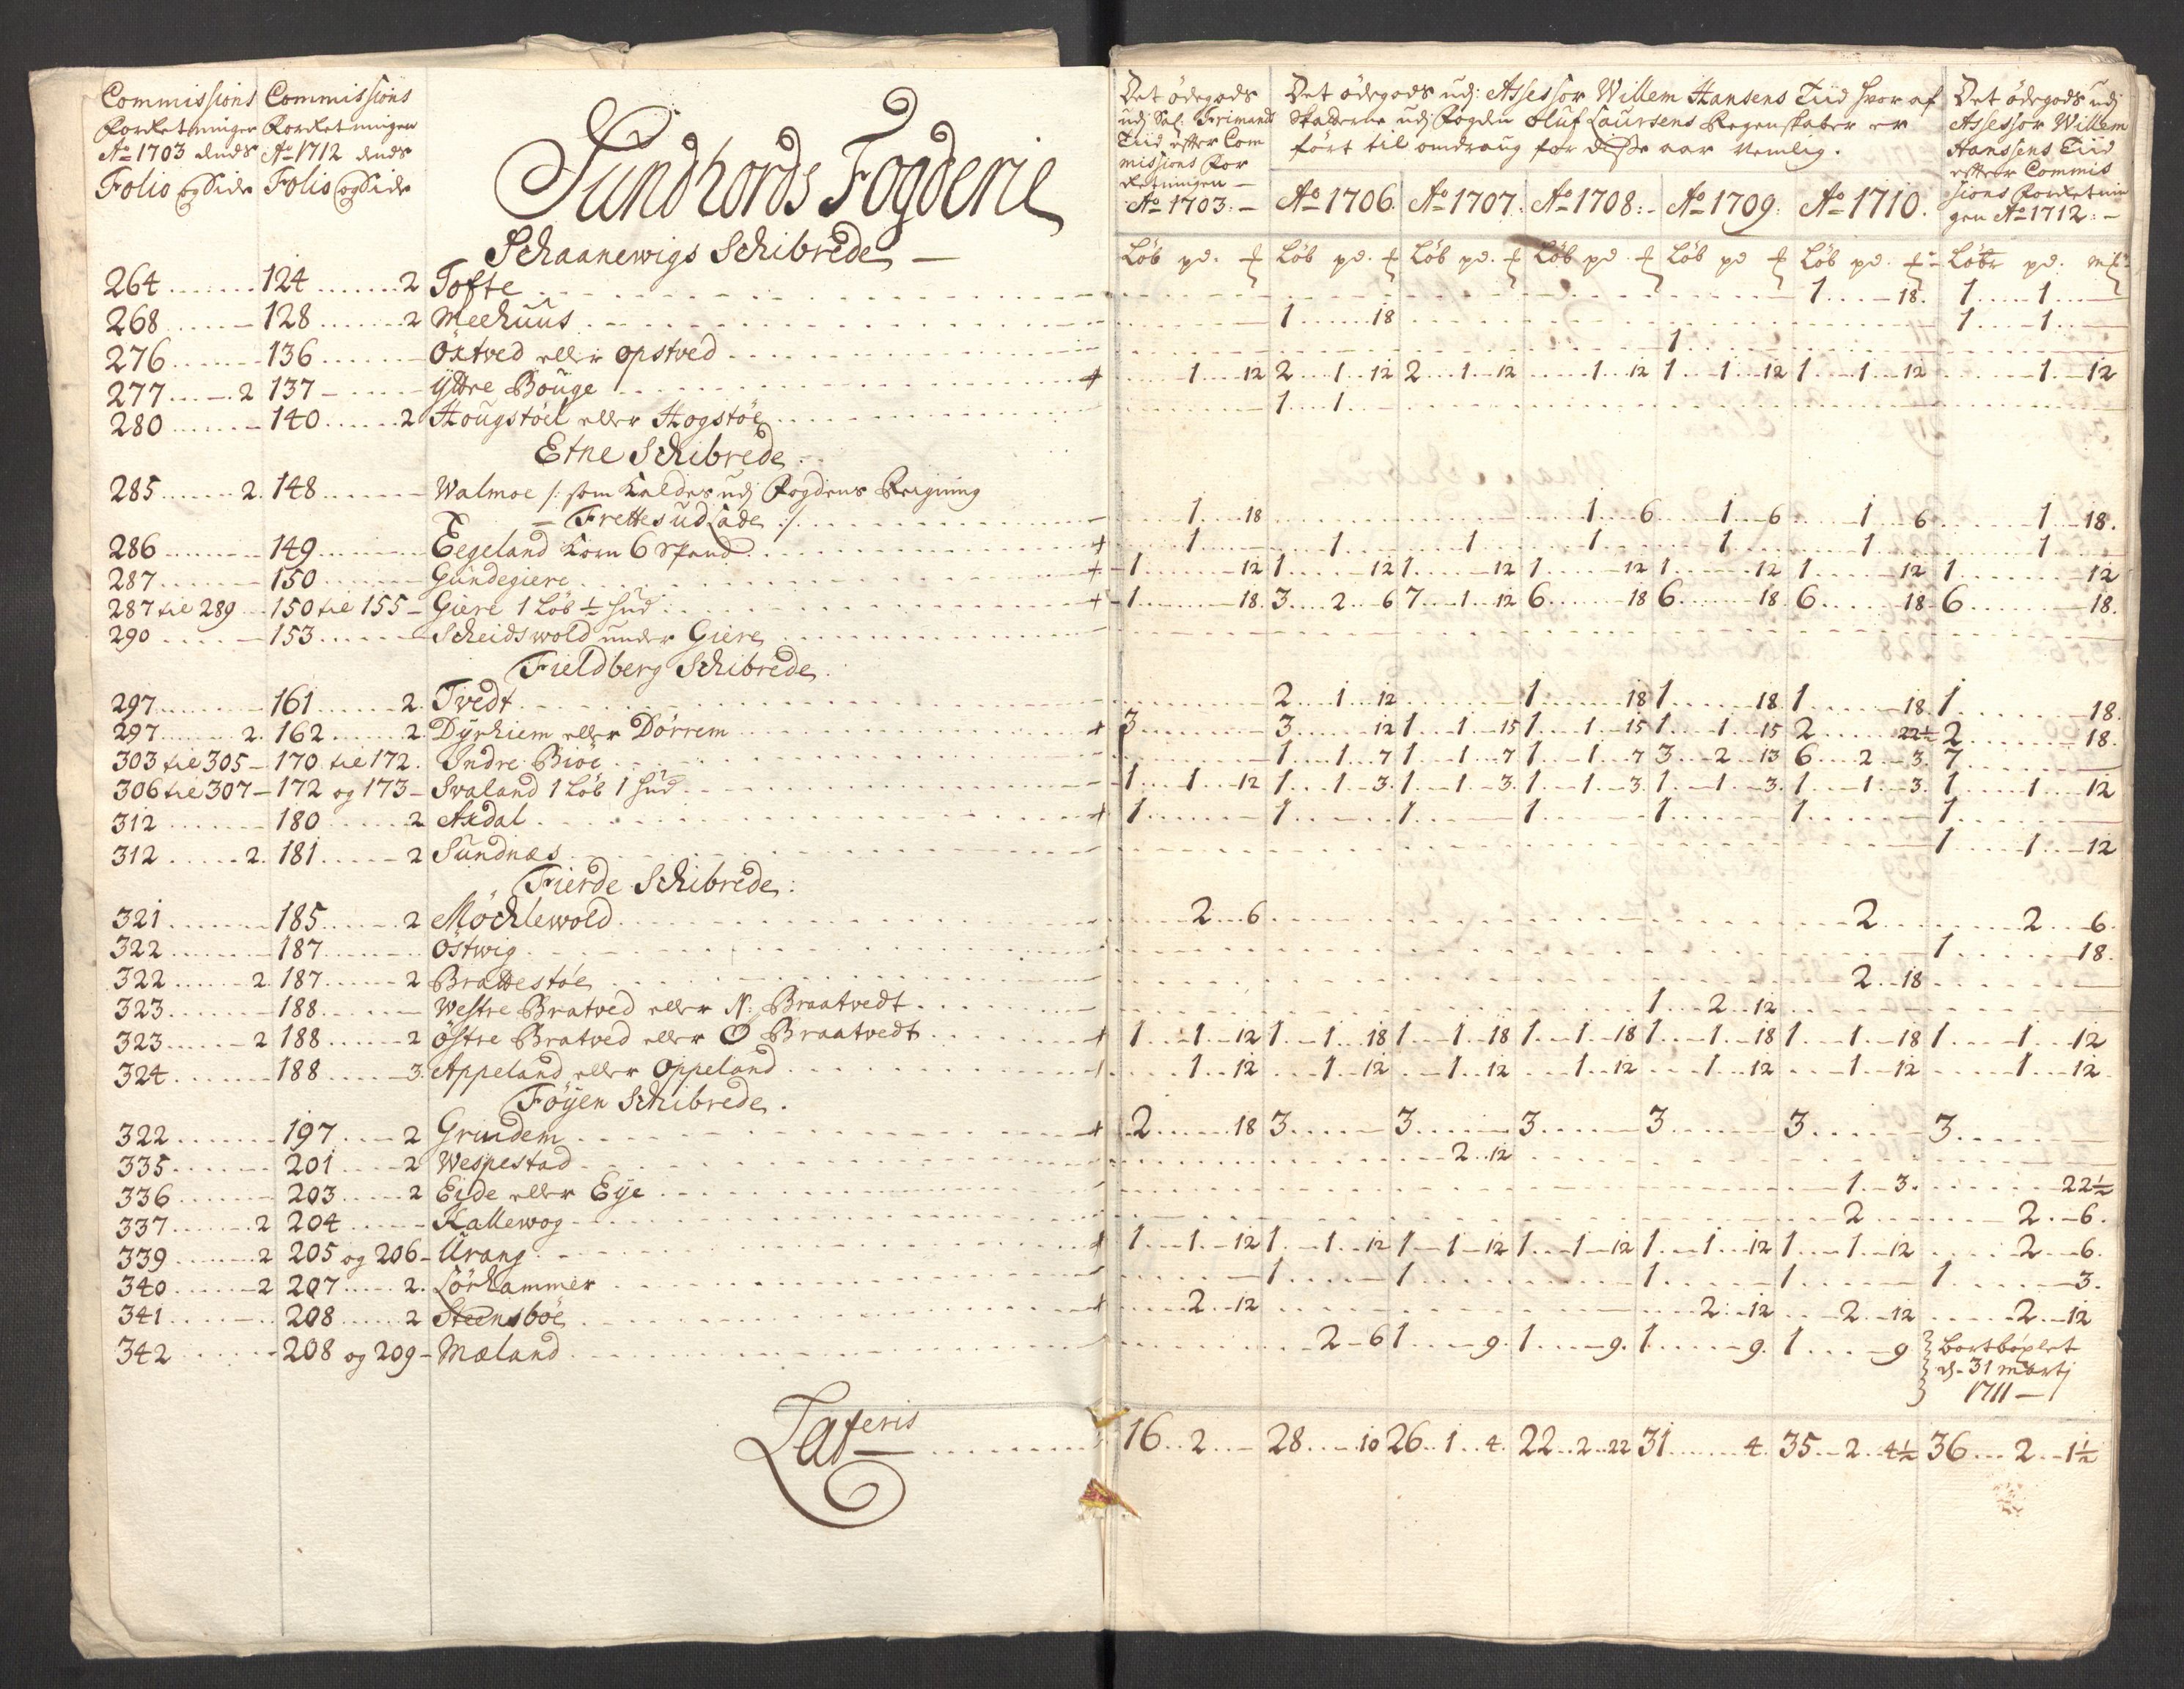 Commissions Commissions
Forretninger Forretningen
Ao 1703 dends Ao 1712 dends
Folio og Side Folio og Side
Sundhords Fogderie
Schaanewigs Schibrede
264 124 2 Tofte
268 128 2 Meehuus
276 136 Oxtved eller Opstved
277 2 137 Yttre Bouge +
280 140 2 Hougstöel eller Hogstöe
Etne Schibrede
285 2. 148 Walmoe /: som kaldes udj Fogdens Reigning
Frettes udlade :/
286 149 Eegeland Korn 6 Spand +
287 150 Gundegiere +
287 til 289 150 til 155 Giere 1 Løb ½ hud +
290 153 Scheidswold under Giere
Fieldberg Schibrede
297 161 2. Tvedt
297 2. 162 2. Dyrhiem eller Dörrem +
303 til 305 170 til 172. Indre Biöe
306 til 307 172 og 173 Svaland 1 Løb 1 hud
312 180 2 Axdal +
312 2. 181 2 Sundnæs
Fierde Schibrede:
321 185 2 Möchlewold
322 187 Östwig
322 2. 187 2 Brattestöe
323 188 Westre Bratved eller N: Braatvedt
323 2 188 2 Östre Bratved eller Ö Braatvedt +
324 188 3. Appeland eller Oppeland
Föyen Schibrede.
322 197 2 Grindem +
335 201 2 Wespestad
336 203 2 Eide eller Eije
337 2 204 Kallewog
339 2 205 og 206 Urang +
340 2 207 2. Lörhammer
341 208 2 Steensböe +
342 208 og 209 Mæland
Lateris
Det ödegods udj Sal: Frimands Tiid effter Commissions Forretningen Ao 1703.
Det ödegods udj: Assessor Willem Hansens Tiid hvor af
Skatterne udj Fogden Oluf Laursens Regenskaber er
fört til omdraug for disse aar Nemlig.
Ao 1706. Ao 1707. Ao 1708: Ao 1709: Ao 1710.
Det ödegods udj
Assessor Willem
Hanssens Tiid
effter Commis
sions Forretnin
gen Ao 1712:
Löb pd. Löb pd. Löb pd. Löb pd Löb pd Löb pd. Löbe pd. m
1 18. 1 1
1 18 1 1
1
1 12 2 1 12 2 1 12 1 12 1 1 12 1 1 12 1 12
1 1
1 18 1 6 1 6 1 6 1 18.
1 1 1 1 1 1 1
1 12 1 12 1 12 1 12 1 12 1 12 1 12
1 18. 3 2 6 7 1 12 6 18 6 18 6 18 6 18.
2 1 12 1 18 1 18 1 18 1 18.
3 3 12 1 1 15 1 1 15 1 1 15 2 22½ 2 18.
1 1 7 1 1 7 1 1 7 3 2 13 6 2 3. 7
1 1 12 1 1 3. 1 1 3. 1 1 3. 1 1 3. 1 1 3. 1 1 12
1 1 1 1 1 1 1
1 1 12
2 6 2 2 6.
1 18.
2 18
1 2 12
1 1 12 1 1 18 1 1 18 1 1 18 1 1 18 1 1 18 1 1 12
1 12 1 12 1 12 1 12 1 12 1 12 1 12
2 18 3 3 3 3 3 3
2 12
1 3. 22½
2 2 6.
1 1 12 1 1 12 1 1 12 1 1 12 1 1 12 1 1 12 2 6.
1 1 1 1 1 3.
2 12 2 12 2 12 2 12
2 6 1 9. 1 9. 1 9. 1 9 bortböxlet
d. 31 Martj
1711
16 2 28 10 26 1 4. 22 2 22 31 4. 35 2 4½ 36 2 1½